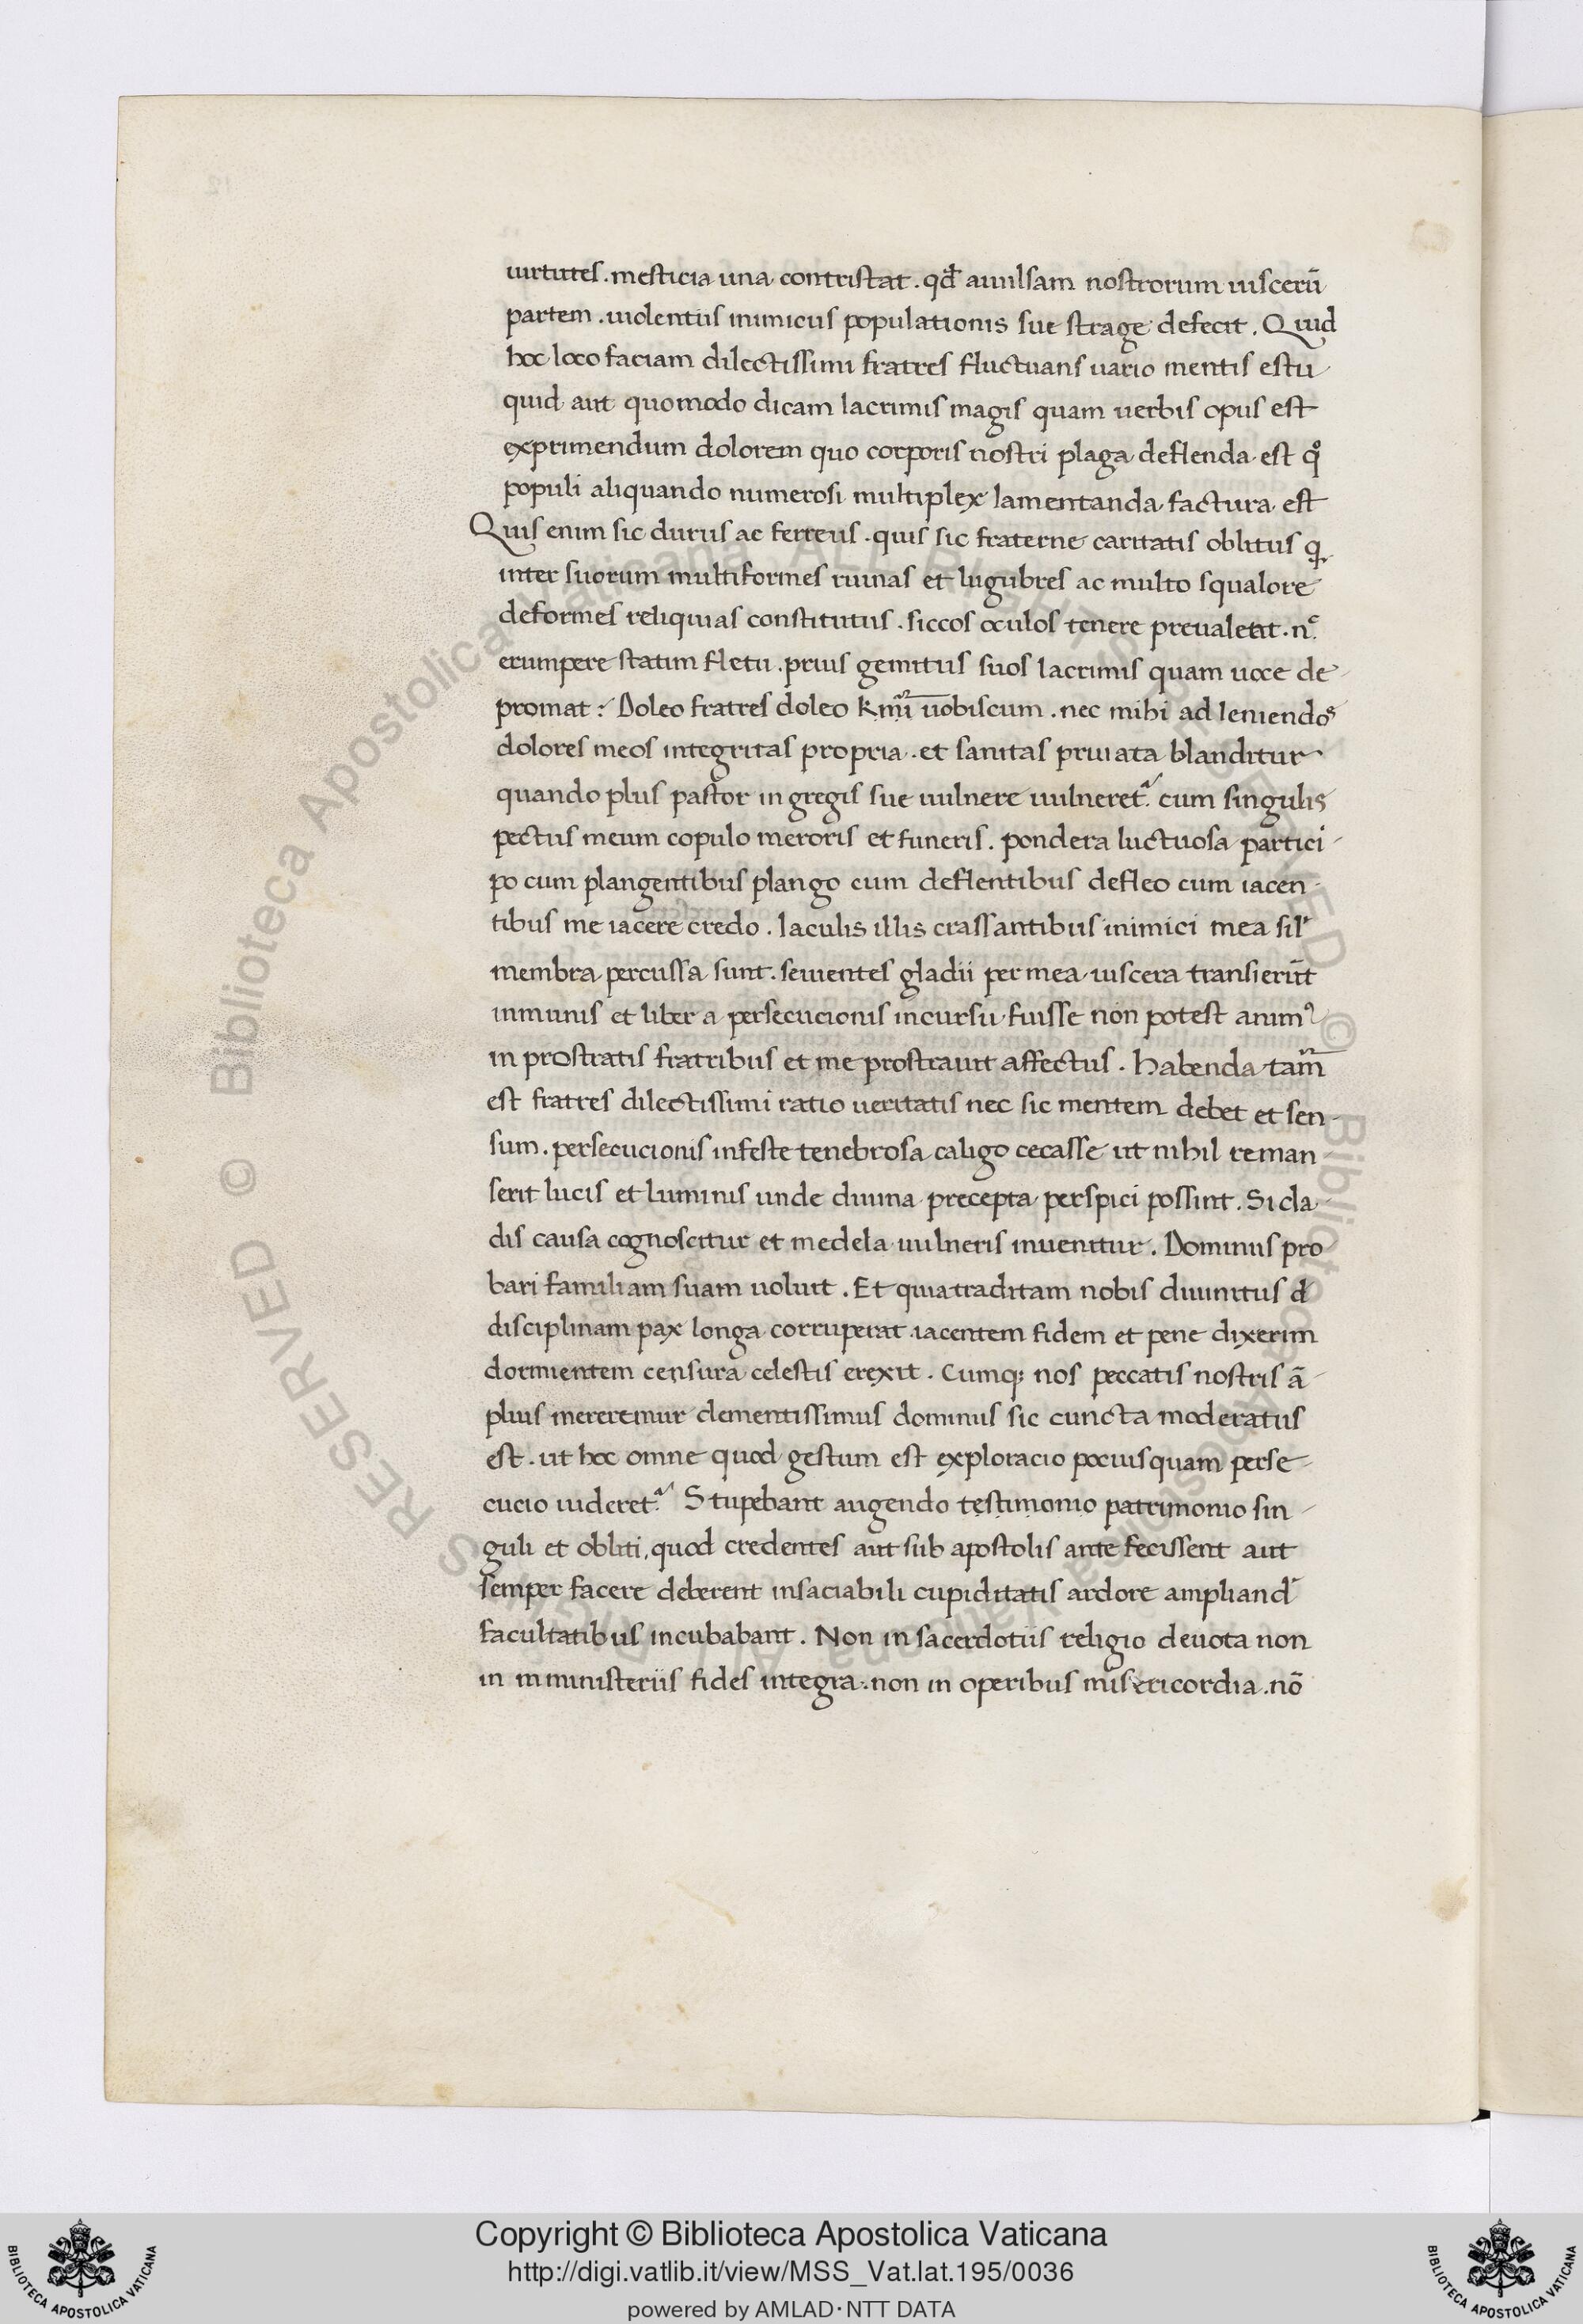 uirtutes . mesticia una contristat . qđ auulsam nostrorum uiscerū
partem . uiolentus inimicus populationis sue strage defecit . Quid
hoc loco faciam dilectissimi fratres fluctuans uario mentis estu
quid aut quomodo dicam lacrimis magis quam uerbis opus est
exprimendum dolorem quo corporis nostri plaga deflenda est qͦ
populi aliquando numerosi multiplex lamentanda factura est
Quis enim sic durus ac ferreus . quis sic fraterne caritatis oblitus q
inter suorum multiformes ruinas et lugubres ac multo squalore
deformes reliquias constitutus . siccos oculos tenere preualeat . nͨ
erumpere statim fletu . prius gemitus suos lacrimis quam uoce de
promat : Doleo fratres doleo kmi̅ uobiscum . nec mihi ad leniendos
dolores meos integritas propria . et sanitas priuata blanditur
quando plus pastor in gregis sue uulnere uulneret᷑ cum singulis
pectus meum copulo meroris et funeris . pondera luctuosa partici
po cum plangentibus plango cum deflentibus defleo cum iacen
tibus me iacere credo . Iaculis illis crassantibus inimici mea sil᷑
membra percussa sunt . seuientes gladii per mea uiscera transierūt
inmunis et liber a persecucionis incursu fuisse non potest animꝰ
in prostratis fratribus et me prostrauit affectus . Habenda tam̅
est fratres dilectissimi ratio ueritatis nec sic mentem debet et sen
sum . persecucionis infeste tenebrosa caligo cecasse ut nihil reman
serit lucis et luminis unde diuina precepta perspici possint . Si cla
dis causa cognoscitur et medela uulneris inuenitur . Dominus pro
bari familiam suam uoluit . Et quia traditam nobis diuinitus d
disciplinam pax longa corruperat iacentem fidem et pene dixerim
dormientem censura celestis erexit . Cumq; nos peccatis nostris ā
plius mereremur clementissimus dominus sic cuncta moderatus
est . ut hoc omne quod gestum est exploracio pocius quam perse
cucio uideret᷑ Stupebant augendo testimonio patrimonio sin
guli et obliti, quod credentes aut sub apostolis ante fecissent aut
semper facere deberent insaciabili cupiditatis ardore ampliand᷑
facultatibus incubabant . Non in sacerdotiis religio deuota non
in ministeriis fides integra . non in operibus misericordia . nō
Copyright © Biblioteca Apostolica Vaticana
http://digi.vatlib.it/view/MSS_Vat.lat.195/0036
powered by AMLAD·NTT DATA